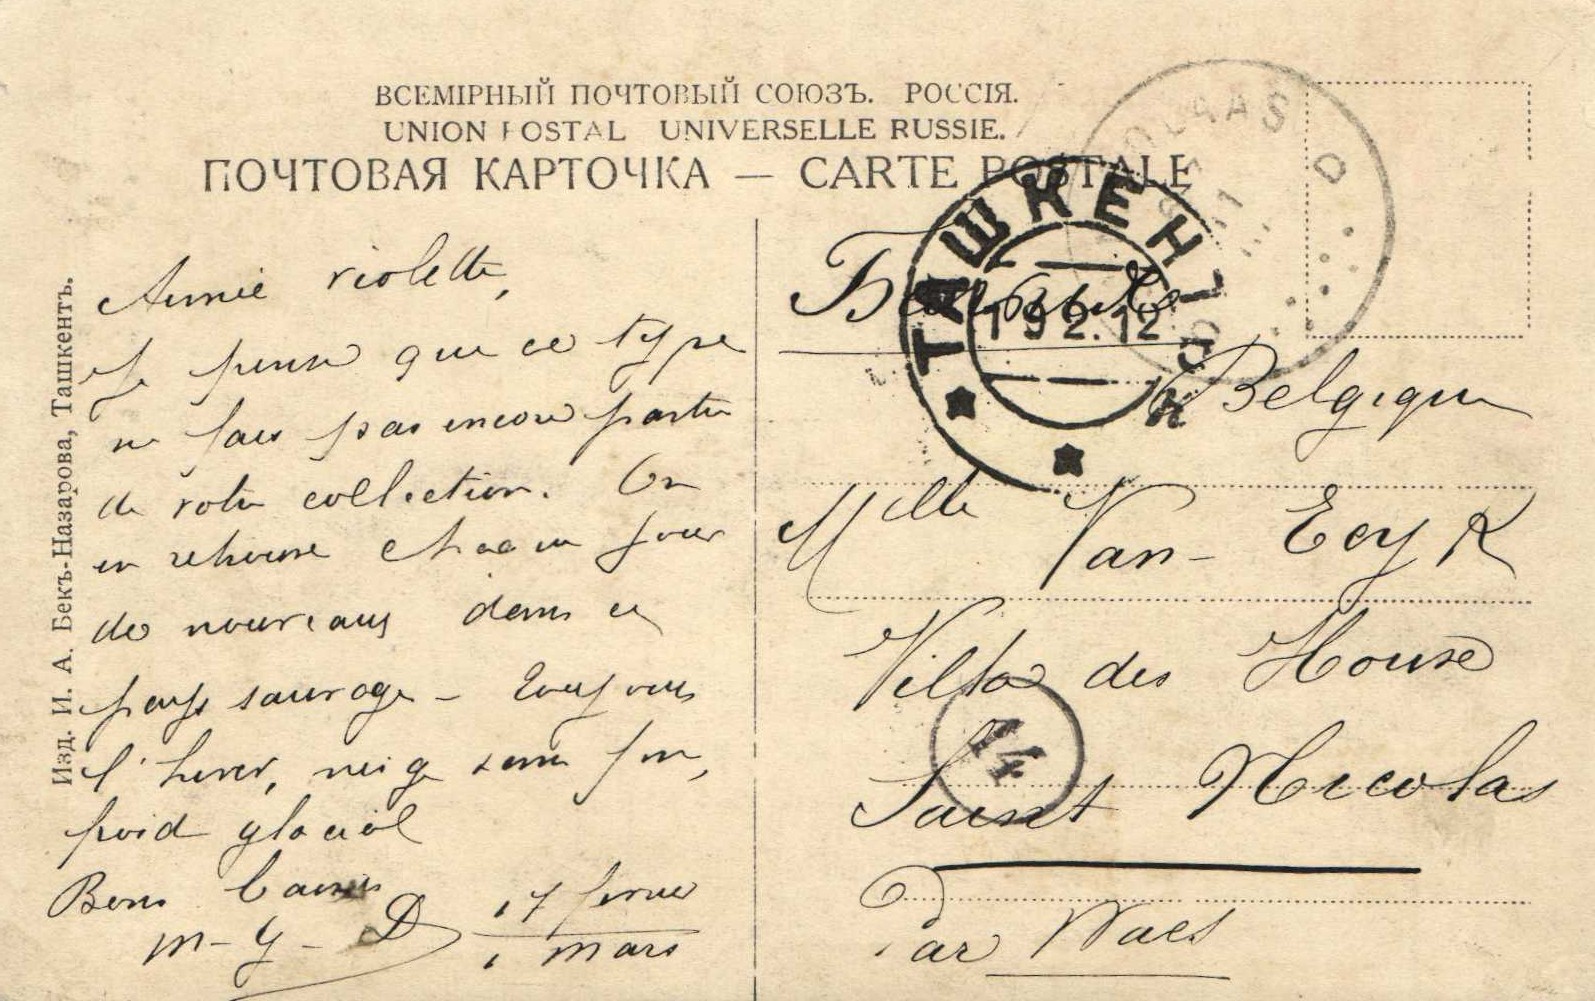 ВСЕМІРНЫЙ ПОЧТОВЫЙ СОЮЗЪ. РОССІЯ.
UNION POSTAL UNIVERSELLE RUSSIE.
ПОЧТОВАЯ КАРТОЧКА — CARTE POSTALE
Изд. И. А. Бекъ-Назарова, Ташкентъ.
Annie violette,
Je pense que ce type
ne fais pas encore partie
de votre collection. On
en retrouve chacun jour
de nouveaux dans ce
pays sauvage - Toujours
l'hiver, neige sans fin,
froid glacial
Bons baisers
m-y-D
17 fevrier
1 mars
ТАШКЕН
1 9 2.12
OLAAS
D
Belgique
Mlle Van-Eeyk
Villa des House
14
Saint Nicolas
Par Waes